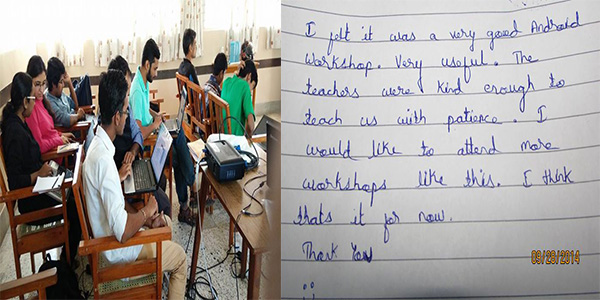 I felt it was a very good Android
workshop. Very useful. The
teachers were kind enough to
teach us with patience. I
would like to attend more
workshops like this. I think
thats it for now.
Thank You
:)
09/29/2014